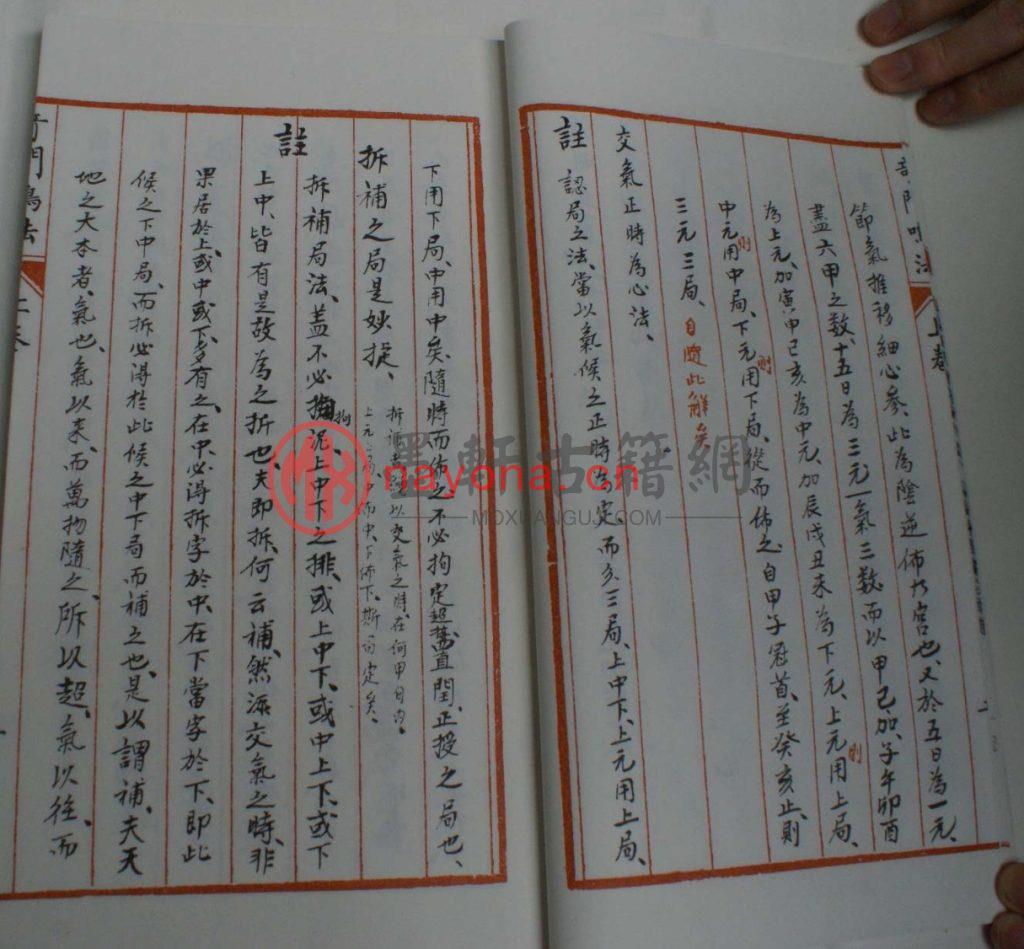 奇門鳴法
上卷
節氣推移細心參、此為陰逆佈九宮也、又於五日為一元、
盡六甲之数、十五日為三元、一氣三数而以甲己、加子午卯酉
為上元、加寅申己亥為中元、加辰戌丑未為下元、上元則用上局、
中元則用中局、下元則用下局、從而佈之自甲子冠首、至癸亥止、則
三元三局、自隨此解矣
交氣正時為心法、
註 認局之法、當以氣候之正時為定而分三局、上中下、上元用上局、
下用下局、中用中矣、隨時而佈之不必拘定超蕎直閏、正授之局也、
拆補之局是妙捉、
拆補者以交氣之時、在何甲自内、
上元上局中佈中、下佈下、斯可定矣、
註
拆補局法、盖不必拘泥上中下之排、或上中下、或中上下、或下
上中、皆有是故為之折也、夫即拆、何云補、然派交氣之時、非
果居於上、或中或下、多有之、在中、必淂拆字於中、在下當字於下、即此
候之下中局、而拆必淂於此候之中下局而補之也、是以謂補、夫天
地之大本者、氣也、氣以来、而萬物隨之、所以超、氣以往、而
奇門鳴法
上卷
墨軒古籍網
nayona.cn
MOXUANGUJI.COM